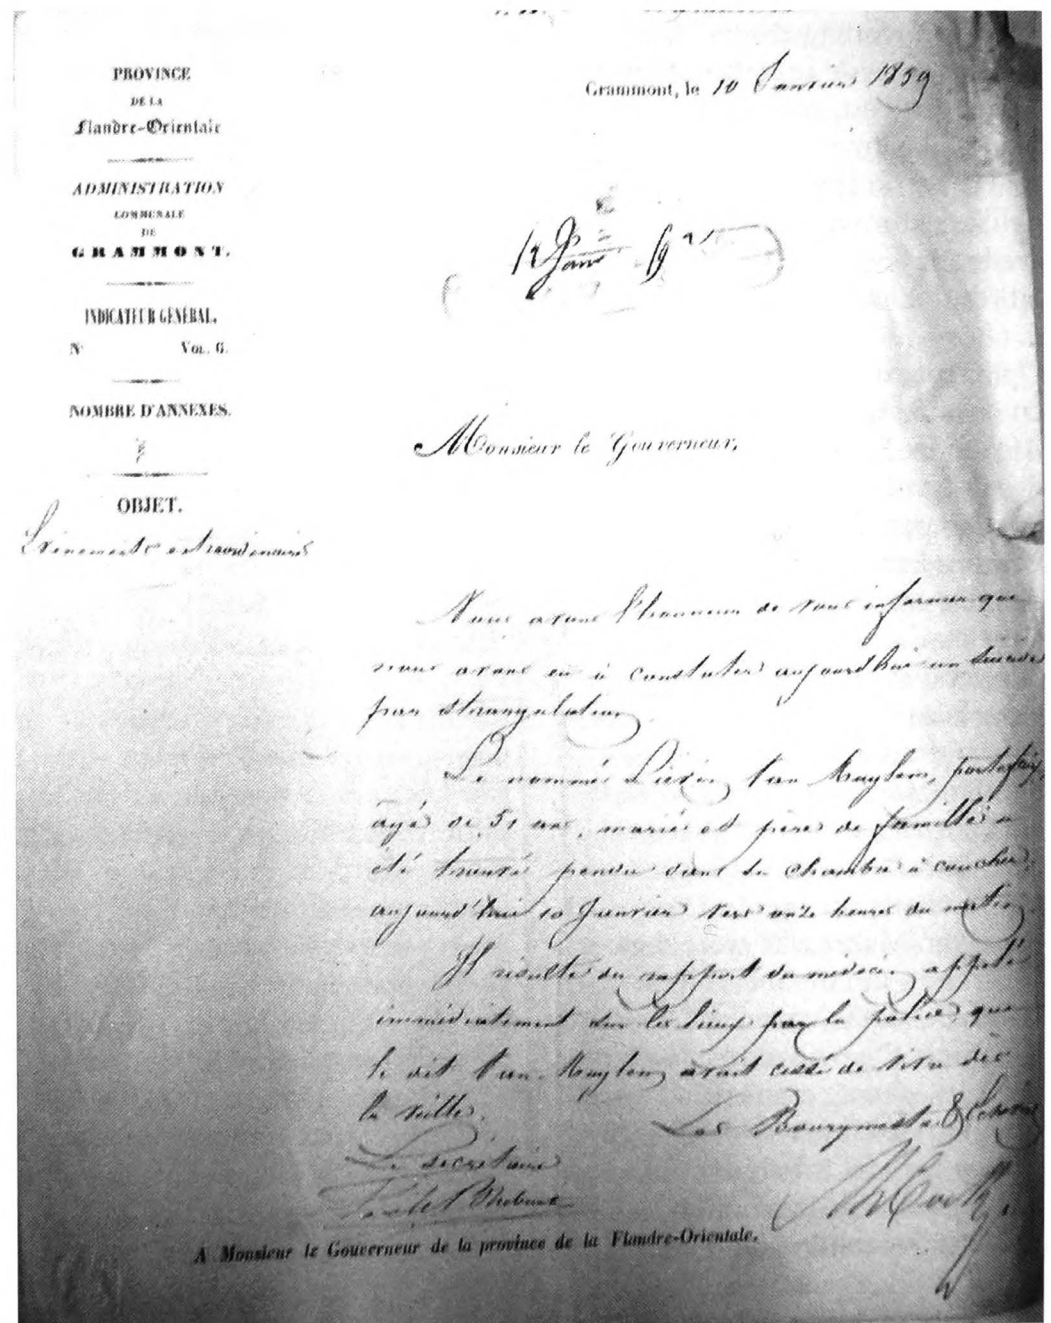 PROVINCE
DE LA
Flandre-Orientale
ADMINISTRATION
COMMUNALE
DE
GRAMMONT.
INDICATEUR GÉNÉRAL.
N° VOL. 6.
NOMBRE D'ANNEXES.
OBJET.
Evénements extraordinaires
Grammont, le 10 Janvier 1859
12 Janv
Monsieur le Gouverneur,
Nous avons l'honneur de vous informer que
nous avons eu à constater aujourd'hui un suicide
par strangulation
Le nommé Liévin Van Kuylen, portefaix,
âgé de 51 ans, marié et père de famille a
été trouvé pendu dans sa chambre à coucher,
aujourd'hui 10 Janvier vers onze heures du matin.
Il résulte du rapport du médecin appelé
immédiatement sur les lieux par la police, que
le dit Van Kuylen avait cessé de vivre dès
la veille.
Les Bourgmestre & Echevins
Le secrétaire
A Monsieur le Gouverneur de la province de la Flandre-Orientale.